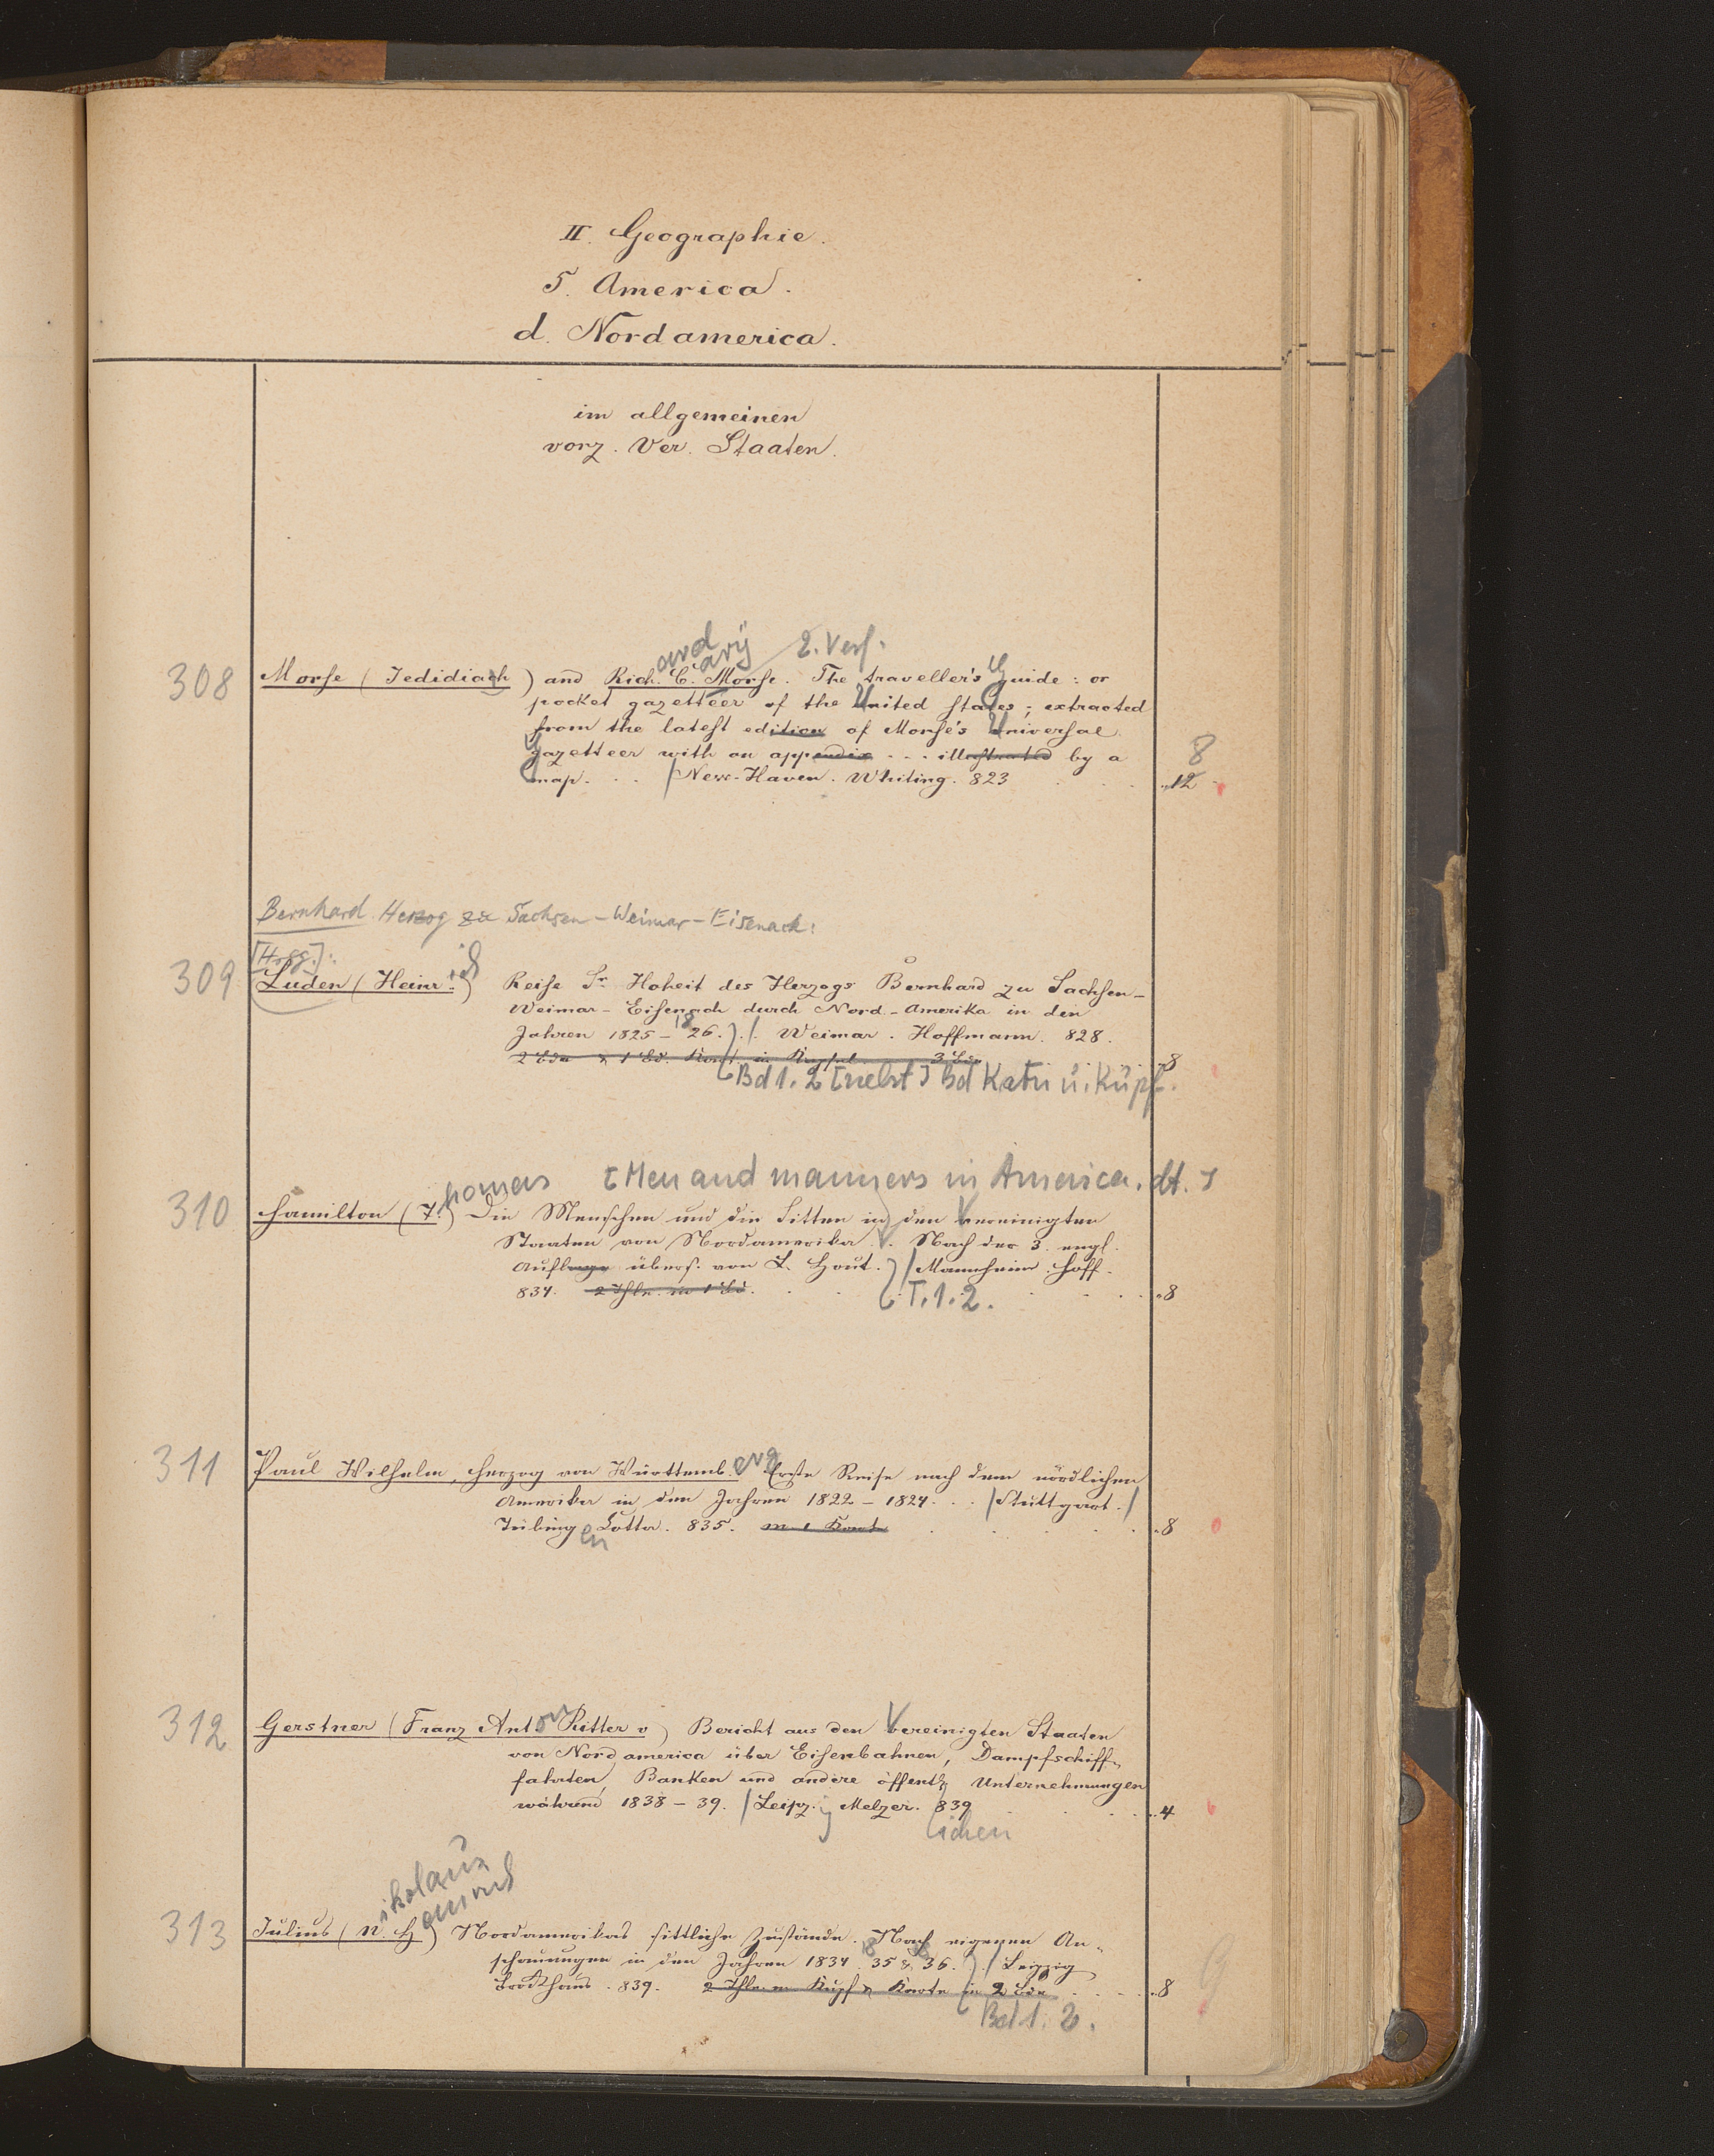 II. Geographie.
5. America.
d. Nordamerica.
im allgemeinen
vorz. Ver. Staaten.
ard ary 2. Verf.
308 Morse (Jedidiah) and Rich. C. Morse. The traveller's Guide: or
pocket gazetteer of the United States; extracted
from the latest edition of Morse's Universal
Gazetteer with an appendix . . . illustrated by a 8
map. . . . / New-Haven. Whiting. 823 . . . 12
Bernhard Herzog zu Sachsen-Weimar-Eisenach:
[Hrsg.]: ich
309 Luden (Heinr.) Reise Sr. Hoheit des Herzogs Bernhard zu Sachsen-
Weimar-Eisenach durch Nord-Amerika in den
Jahren 1825-1826. / Weimar. Hoffmann. 828.
2 Bde & 1 Bd. Kart. in Kupf. 3 Bde 8
Bd 1. 2 [nebst] Bd Katn ü. Küpf.
homas [Men and manners in America. dt.]
310 Hamilton (T.) Die Menschen und die Sitten in den Vereinigten
Staaten von Nordamerika. . . Nach der 3. engl.
Auflage übers. von L. Hout. / Mannheim. Hoff.
834. 2 Thle. in 1 Bd. T. 1. 2. 8
311 Paul Wilhelm, Herzog von Württemb.erg Erste Reise nach dem nördlichen
Amerika in den Jahren 1822-1824. . . / Stuttgart. /
Tübingen Cotta. 835. m. 1 Karte . . . 8
312 Gerstner (Franz Anton Ritter v) Bericht aus den Vereinigten Staaten
von Nordamerica über Eisenbahnen, Dampfschiff-
fahrten, Banken und andere öffentl. Unternehmungen
während 1838-39. / Leipz.ig Melzer. 839 . . . 4
lichen
ikolaus
einrich
313 Julius (N. H) Nordamerikas sittliche Zustände. Nach eigenen An-
schauungen in den Jahren 1834 1835 & 1836. / Leipzig
Brockhaus. 839. 2 Thle. m Kupf & Karte in 2 Bde . . . 8
Bd 1. 2.